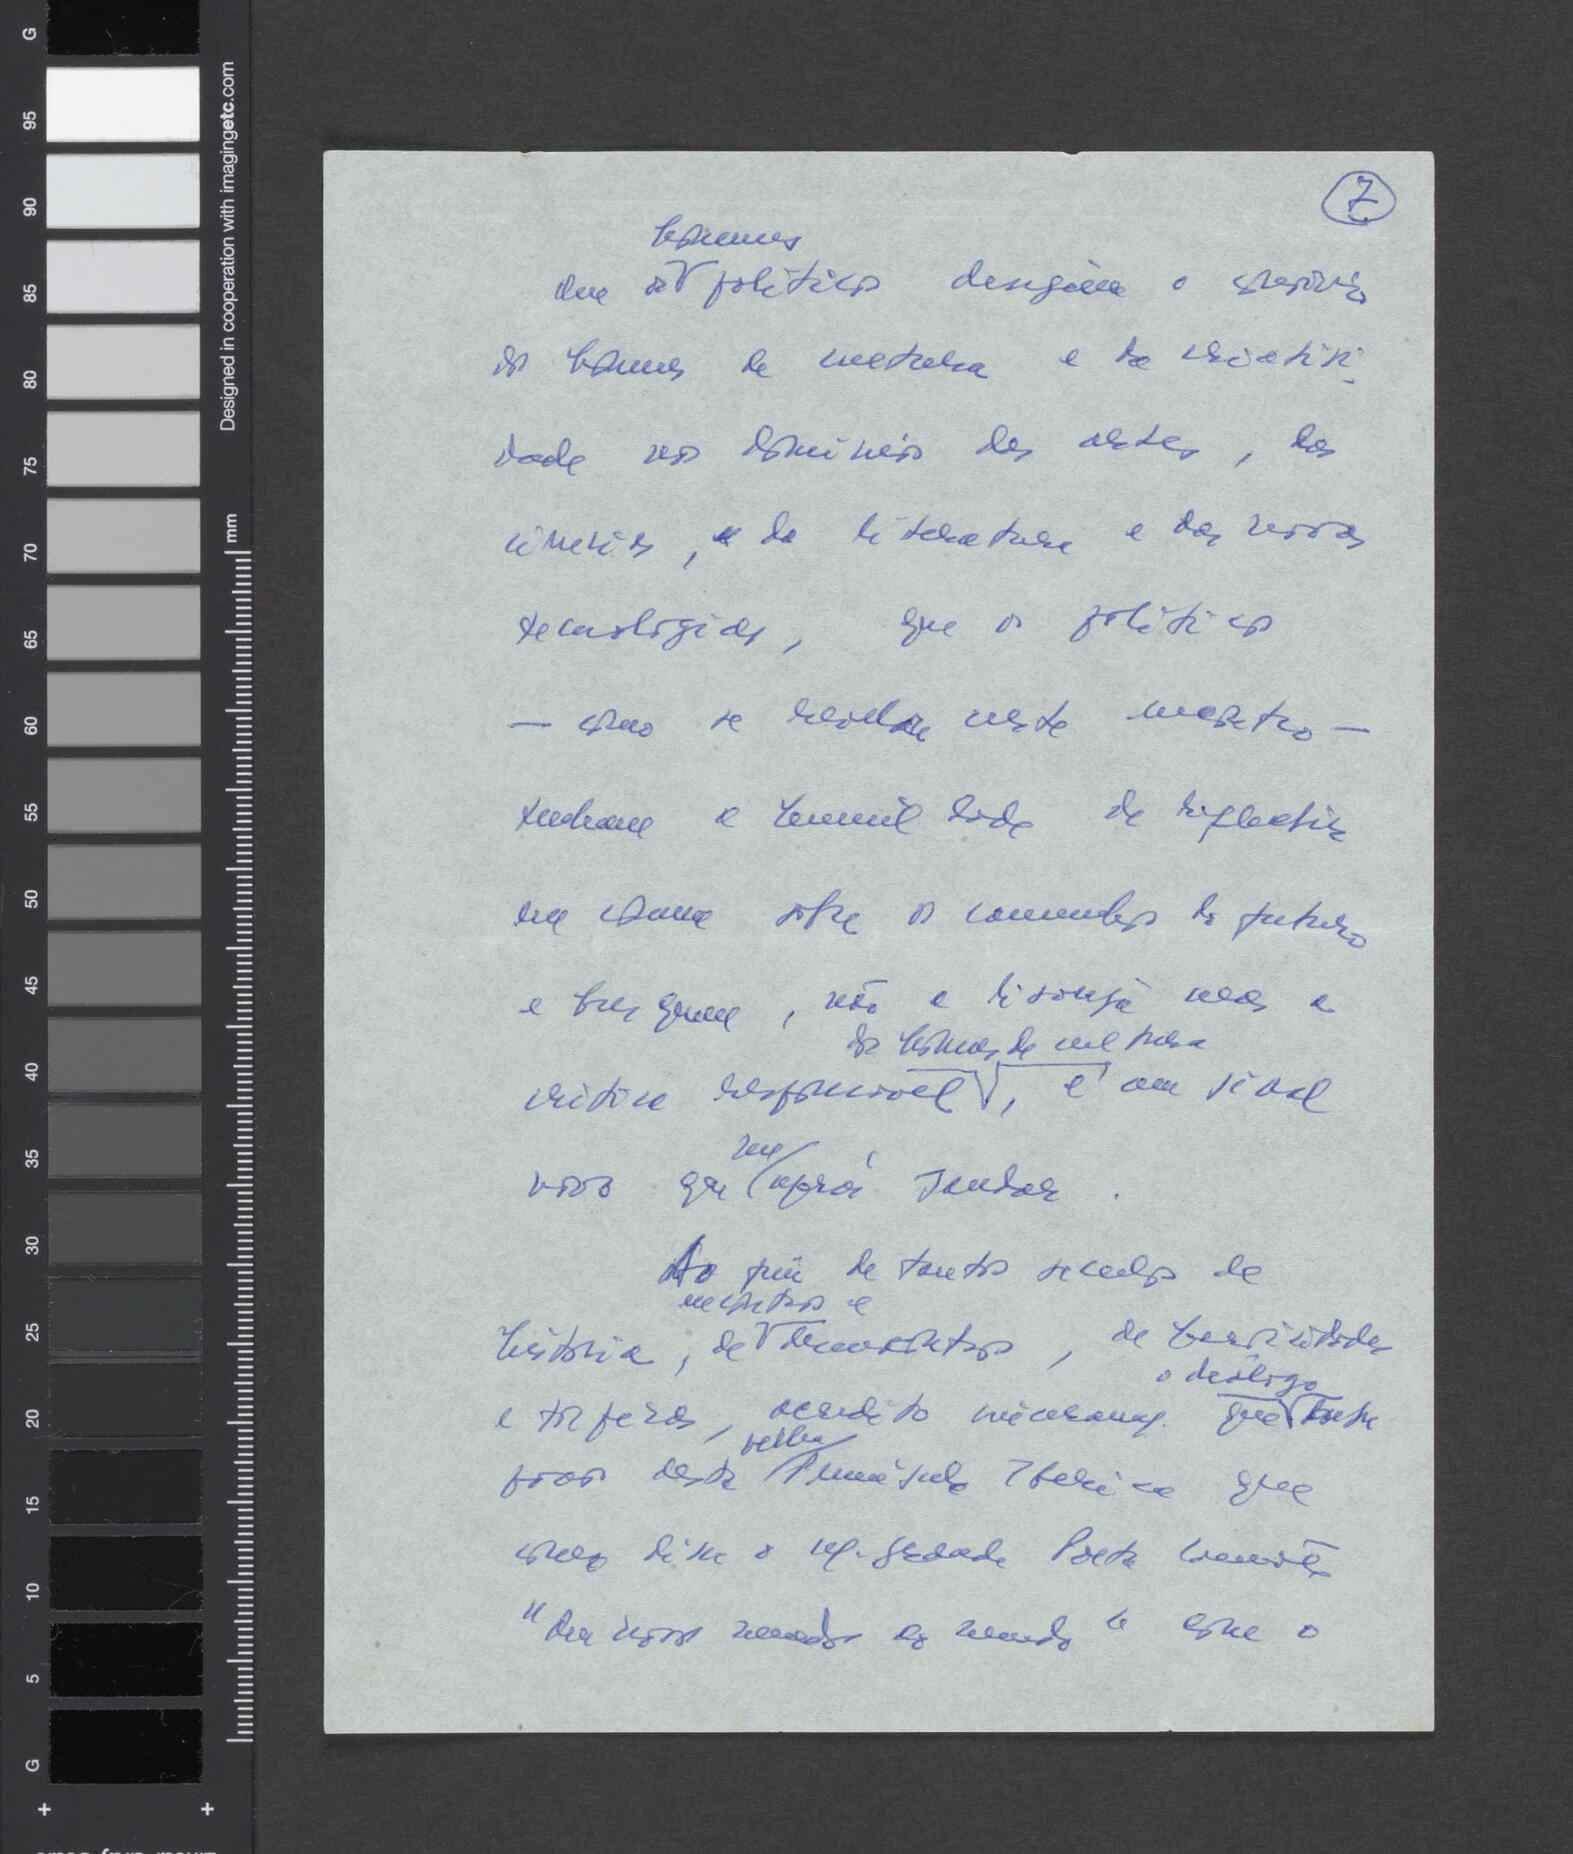 7
homens
Que os políticos desejem o convívio
dos homens de cultura e da criativi-
dade nos domínios das artes, das
ciências, da literatura e das novas
tecnologias, que os políticos
— como se revela neste encontro —
tenham a humildade de reflectir
em comum sobre os caminhos do futuro
e busquem, não a lisonja mas a
dos homens de cultura
crítica responsável, é um sinal
me
novo que apraz saudar.
Ao fim de tantos séculos de
encontros e
história, de desencontros, de
o diálogo
e, acredito que entre
velha
povos desta Península Ibérica que
como disse o Poeta Camões
"deu novos mundos ao mundo" e que o
G
95
90
85
80
75
70
65
60
55
50
45
40
35
30
25
20
15
10
5
G
Designed in cooperation with imagingetc.com
mm